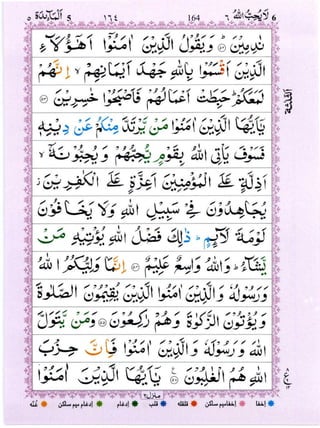 لَا يُحِبُّ اللّٰهُ ٦ 164 ١٦٤ اَلْمَآئِدَة ٥
نٰدِمِيْنَ ۝٥٢ وَيَقُوْلُ الَّذِيْنَ اٰمَنُوْۤا اَهٰۤؤُلَآءِ
الَّذِيْنَ اَقْسَمُوْا بِاللّٰهِ جَهْدَ اَيْمَانِهِمْ ۙ اِنَّهُمْ
لَمَعَكُمْ ؕ حَبِطَتْ اَعْمَالُهُمْ فَاَصْبَحُوْا خٰسِرِيْنَ ۝٥٣
يٰۤاَيُّهَا الَّذِيْنَ اٰمَنُوْا مَنْ يَّرْتَدَّ مِنْكُمْ عَنْ دِيْنِهٖ
فَسَوْفَ يَاْتِى اللّٰهُ بِقَوْمٍ يُّحِبُّهُمْ وَيُحِبُّوْنَهٗۤ ۙ
اَذِلَّةٍ عَلَى الْمُؤْمِنِيْنَ اَعِزَّةٍ عَلَى الْكٰفِرِيْنَ ؗ
يُجَاهِدُوْنَ فِىْ سَبِيْلِ اللّٰهِ وَلَا يَخَافُوْنَ
لَوْمَةَ لَآئِمٍ ؕ ذٰلِكَ فَضْلُ اللّٰهِ يُؤْتِيْهِ مَنْ
يَّشَآءُ ؕ وَاللّٰهُ وَاسِعٌ عَلِيْمٌ ۝٥٤ اِنَّمَا وَلِيُّكُمُ اللّٰهُ
وَرَسُوْلُهٗ وَالَّذِيْنَ اٰمَنُوا الَّذِيْنَ يُقِيْمُوْنَ الصَّلٰوةَ
وَيُؤْتُوْنَ الزَّكٰوةَ وَهُمْ رٰكِعُوْنَ ۝٥٥ وَمَنْ يَّتَوَلَّ
اللّٰهَ وَرَسُوْلَهٗ وَالَّذِيْنَ اٰمَنُوْا فَاِنَّ حِزْبَ
اللّٰهِ هُمُ الْغٰلِبُوْنَ ۝٥٦ يٰۤاَيُّهَا الَّذِيْنَ اٰمَنُوْا
منزل ٢
اخفا اخفا میم ساکن قلقله قلب ادغام ادغام میم ساکن غنّه